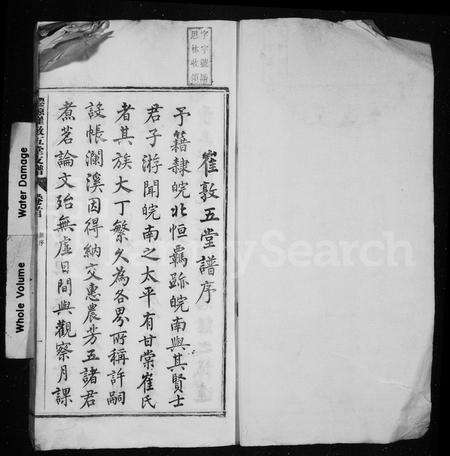 崔敦五堂譜序
予籍隸皖北恒羈跡皖南與其賢士
君子游聞皖南之太平有甘棠崔氏
者其族大丁繁久為各界所稱許嗣
設帳瀾溪因得納交惠農芳五諸君
煮茗論文殆無虛日間與觀察月課
字字號譜
思林收領
卷首
序
Water Damage
Whole Volume
Search